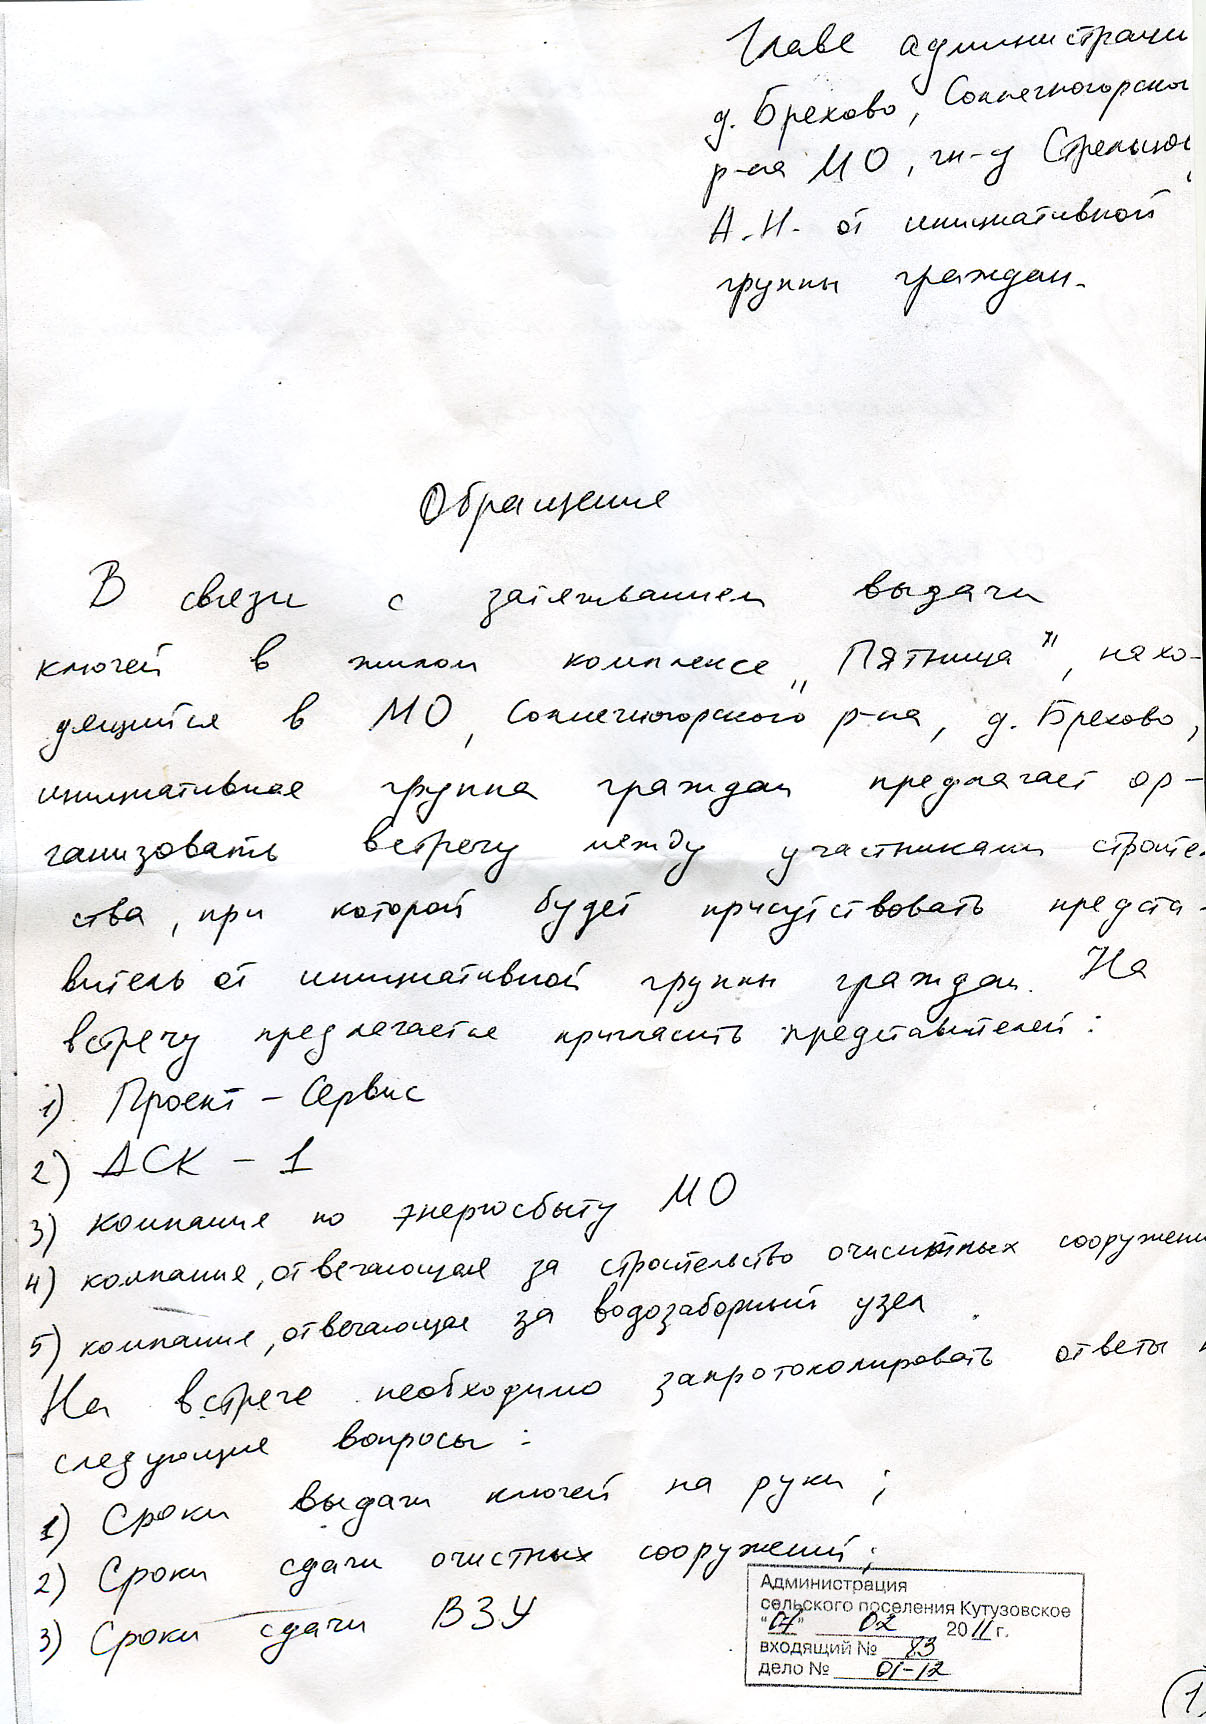 Главе администраци
д. Брехово, Солнечногорског
р-на МО, гн-у
А.Н. от инициативной
группы граждан.
Обращение
В связи с затягиванием выдачи
ключей в жилом комплексе „Пятница", нахо-
дящийся в МО, Солнечногорского р-на, д. Брехово,
инициативная группа граждан предлагает ор-
ганизовать встречу между участниками строите
ства, при которой будет присутствовать предста-
витель от инициативной группы граждан. На
встречу предлагается пригласить представителей:
1) Проект - Сервис
2) ДСК - 1
3) компания по энергосбыту МО
4) компания, отвечающая за строительство очистных сооружени
5) компания, отвечающая за водозаборный узел.
На встрече необходимо запротоколировать ответы н
следующие вопросы:
1) Сроки выдачи ключей на руки;
2) Сроки сдачи очистных сооружений;
3) Сроки сдачи ВЗУ
Администрация
сельского поселения Кутузовское
"07" 02 2011 г.
входящий № 83
дело № 01-12
(1)